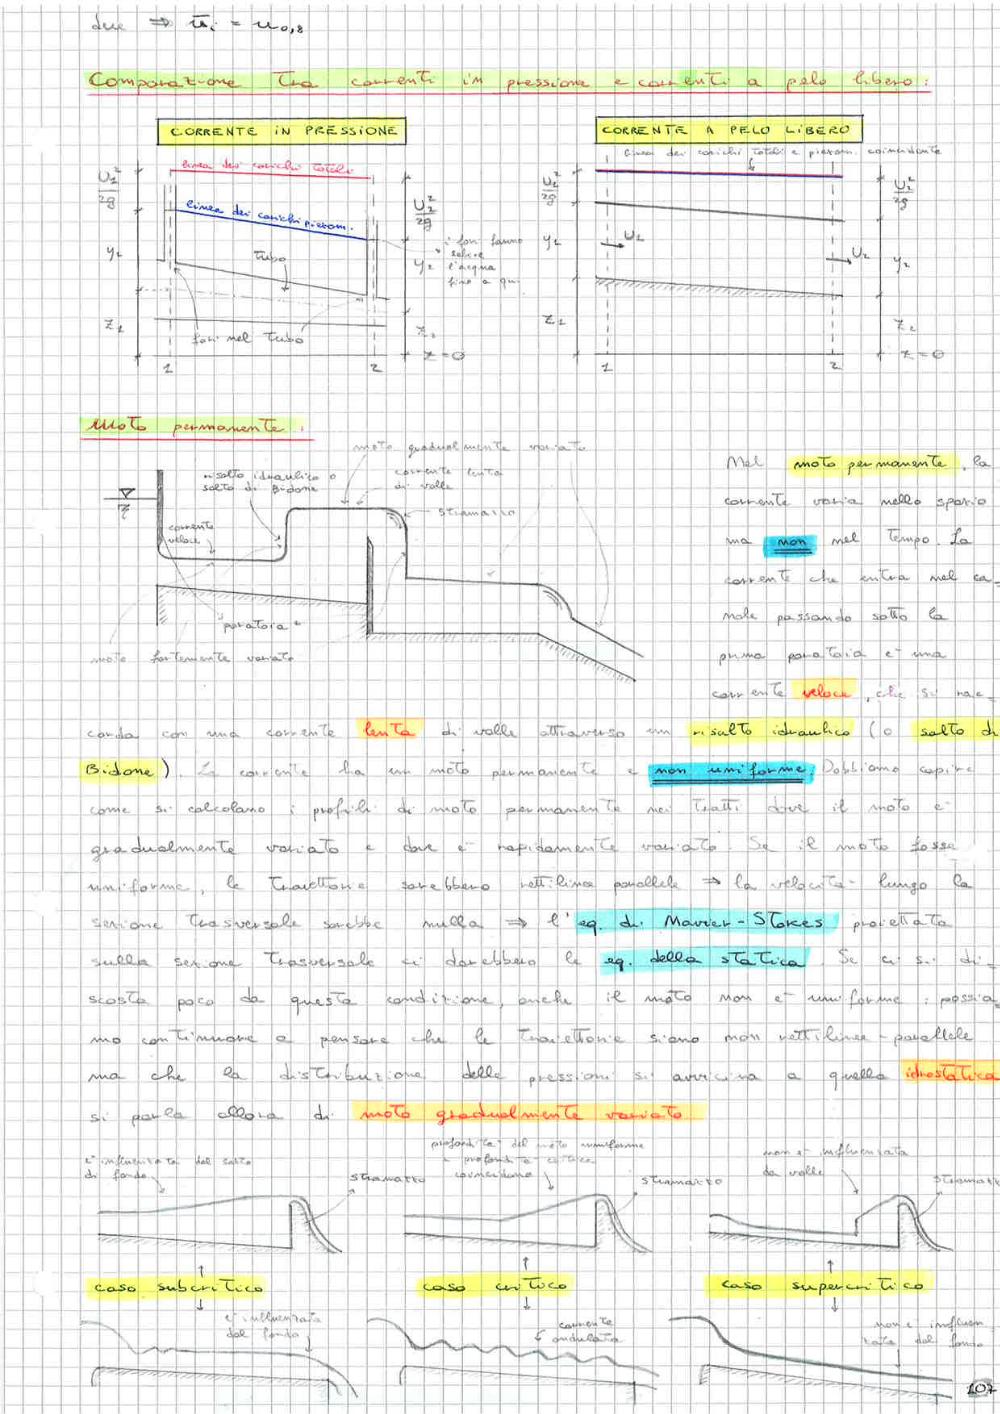 due ⇒ ū_i = u_0,8
Comparazione tra correnti in pressione e correnti a pelo libero:
CORRENTE IN PRESSIONE
CORRENTE A PELO LIBERO
linea dei carichi totali e piezom. coincidente
linea dei carichi totali
U_2^2/2g
U_2^2/2g
linea dei carichi piezom.
i fori fanno
salire
l'acqua
fino a qui
tubo
y_2
U_2
U_2
y_2
Z_1
fori nel tubo
Z_2
Z=0
1
2
Z_1
Z_2
Z=0
1
2
Moto permanente:
moto gradualmente variato
risalto idraulico o
salto di Bidone
corrente lenta
di valle
stramazzo
corrente
veloce
paratoia
moto fortemente variato
Nel moto permanente, la
corrente varia nello spazio
ma non nel tempo. La
corrente che entra nel ca-
nale passando sotto la
prima paratoia è una
corrente veloce, che si rac-
corda con una corrente lenta di valle attraverso un risalto idraulico (o salto di
Bidone). La corrente ha un moto permanente e non uniforme. Dobbiamo capire
come si calcolano i profili di moto permanente nei tratti dove il moto è
gradualmente variato e dove è rapidamente variato. Se il moto fosse
uniforme, le traiettorie sarebbero rettilinee parallele ⇒ la velocità lungo la
sezione trasversale sarebbe nulla ⇒ l'eq. di Navier-Stokes proiettata
sulla sezione trasversale ci darebbero le eq. della statica. Se ci si di-
scosta poco da questa condizione, anche il moto non è uniforme: possia-
mo continuare a pensare che le traiettorie siano non rettilinee-parallele
ma che la distribuzione delle pressioni si avvicina a quella idrostatica
si parla allora di moto gradualmente variato
è influenzata dal salto
di fondo
stramazzo
profondità del moto uniforme
e profondità critica
coincidono
stramazzo
non è influenzata
da valle
stramazzo
caso subcritico
caso critico
caso supercritico
è influenzata
dal fondo
corrente
ondulata
non è influen
zata dal fondo
107